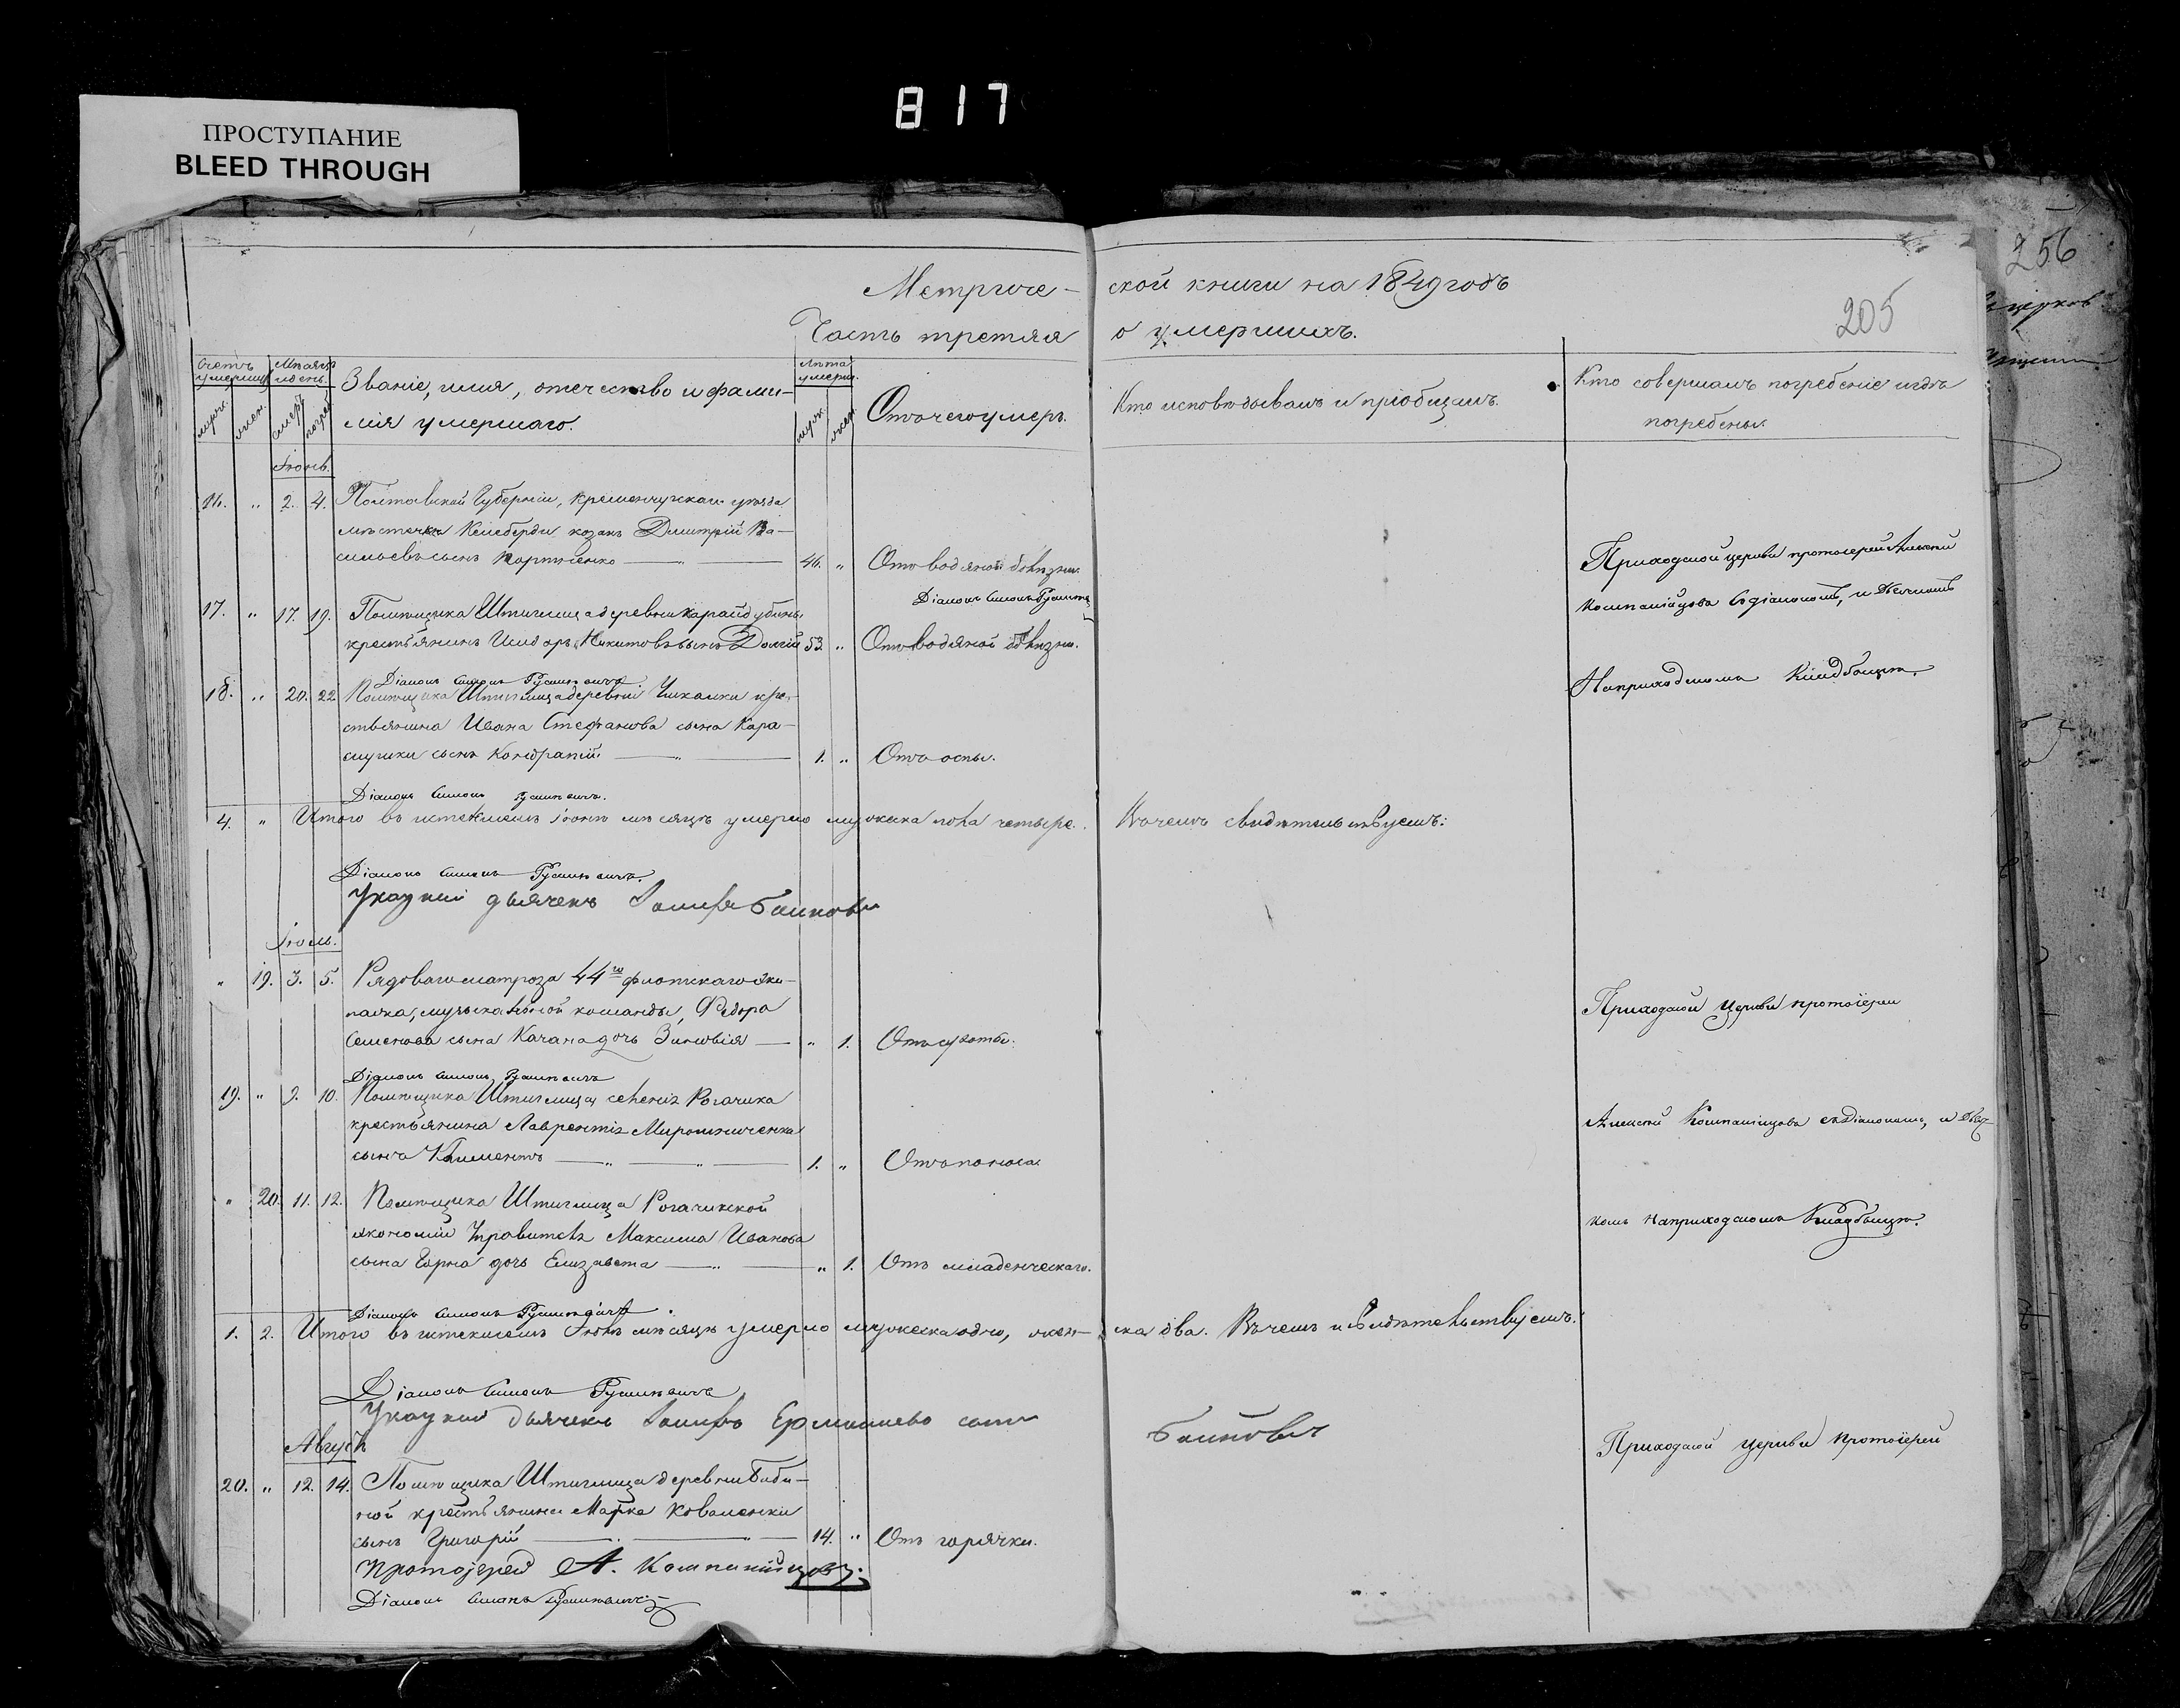 817
ПРОСТУПАНИЕ
BLEED THROUGH
256
205
Метриче- ской книги на 1849 годъ
Часть третяя о умершихъ.
Счетъ умершихъ
муж. жен.
Мѣсяцъ и день.
смер. погреб.
Званіе, имя, отечество и фами-
лія умершаго.
Лѣта умерш.
муж. жен.
Отъ чего умеръ.
Кто исповѣдывалъ и пріобщалъ.
Кто совершалъ погребеніе и гдѣ
погребены.
Іюнь.
16. " 2. 4. Полтавской Губерніи, Кременчугскаго уѣзда
мѣстечка Келеберди козакъ Дмитрій Ва-
сильевъ сынъ Портненко 46. " Отъ водяной болѣзни.
Діаконъ Симонъ
Приходской церкви протоіерей Алексій
Компаніцовъ съ діакономъ, и дьячкомъ
17. " 17. 19. Помѣщика Штиглица деревни Карайдубины
крестьянинъ Исидоръ Никитовъ сынъ Долгій 53. " Отъ водяной болѣзни.
Діаконъ Симонъ
На приходскомъ кладбищѣ.
18. " 20. 22. Помѣщика Штиглица деревни Чикалки кре-
стьянина Ивана Стефанова сына Кара-
сын Кондратій 1. " Отъ оспы.
Діаконъ Симонъ
4. " Итого въ истекшемъ Іюнѣ мѣсяцѣ умерло мужеска пола четыре. Въ чемъ свидѣтельствуемъ:
Діаконъ Симонъ
Указный дьячекъ
Іюль.
" 19. 3. 5. Рядоваго матроза 44го флотскаго эки-
пажа, музыкальной команды, Федора
Семенова сына Качана дочь Зиновія " 1. Отъ сухоты.
Приходской Церкви протоіерей
Діаконъ Симонъ
19. " 9. 10. Помѣщика Штиглица селенія Рогачика
крестьянина Лаврентія Мирошниченка
сынъ Климентъ 1. " Отъ поноса.
Алексій Компаніцовъ съ Діакономъ, и дьяч-
" 20. 11. 12. Помѣщика Штиглица Рогачикской
экономіи Управителя Максима Иванова
сына дочь Елизавета " 1. Отъ младенческаго.
комъ на приходскомъ кладбищѣ.
Діаконъ Симонъ
1. 2. Итого въ истекшемъ Іюлѣ мѣсяцѣ умерло мужеска одно, жен- ска два. Въ чемъ и свидѣтельствуемъ:
Діаконъ Симонъ
Указный дьячекъ
Августъ
20. " 12. 14. Помѣщика Штиглица деревни Баби-
ной крестьянина Марка Коваленки
сынъ Григорій 14. " Отъ горячки.
Приходской Церкви протоіерей
Протоіерей А. Компаніцовъ.
Діаконъ Симонъ